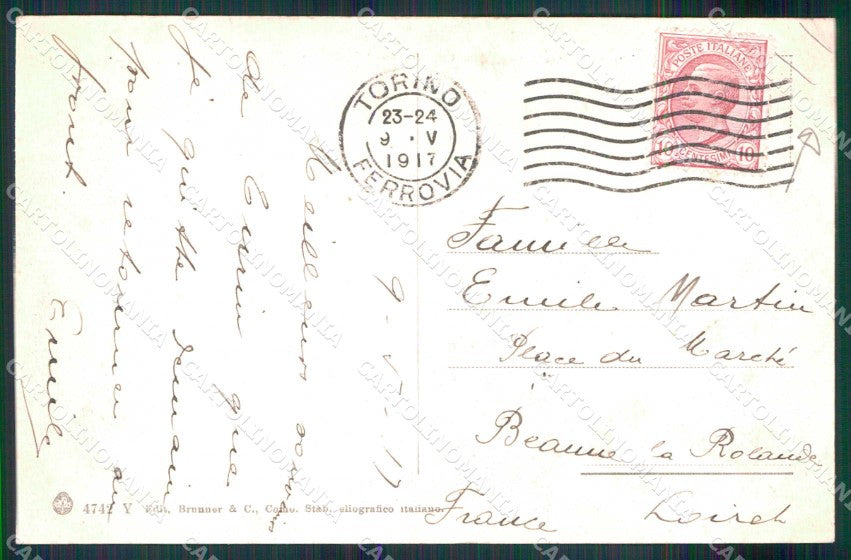 9.5.17
Meilleurs souvenirs
de Turin que
je quitte demain
pour retourner au
front.
Emile
TORINO
23-24
9 · V
1917
FERROVIA
POSTE ITALIANE
10 CENTESIMI 10
Famille
Emile Martin
Place du Marché
Beaune la Rolande
Loiret
France
4742 Y Edit. Brunner & C., Como. Stab. eliografico italiano.
CARTOLINOMANIA